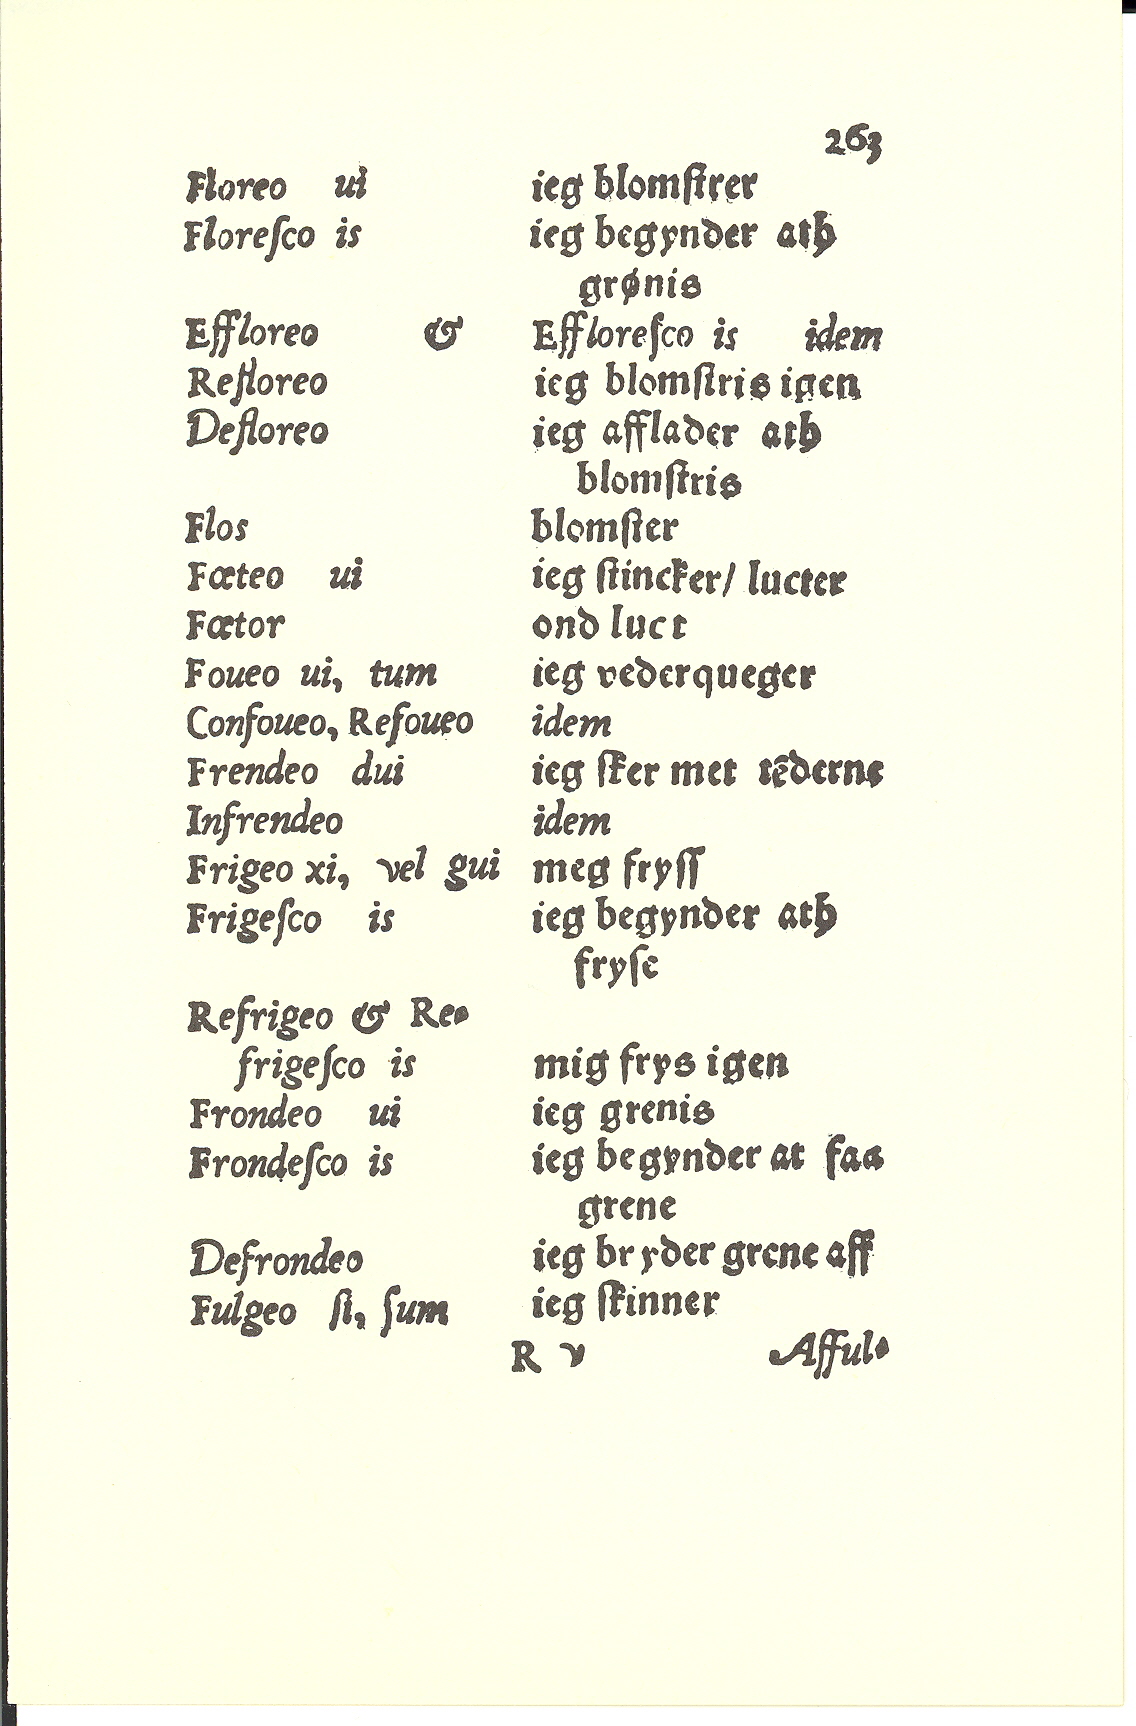 263
Floreo ui ieg blomſtrer
Floreſco is ieg begynder ath
grønis
Effloreo & Effloreſco is idem
Refloreo ieg blomſtris igen
Defloreo ieg afflader ath
blomſtris
Flos blomſter
Fœteo ui ieg ſtincker/ lucter
Fœtor ond luct
Foueo ui, tum ieg vederqueger
Confoueo, Refoueo idem
Frendeo dui ieg ſker met tēderne
Infrendeo idem
Frigeo xi, vel gui meg fryſſ
Frigeſco is ieg begynder ath
fryſe
Refrigeo & Re-
frigeſco is mig frys igen
Frondeo ui ieg grenis
Frondeſco is ieg begynder at faa
grene
Defrondeo ieg bryder grene aff
Fulgeo ſi, ſum ieg ſkinner
R v Afful-